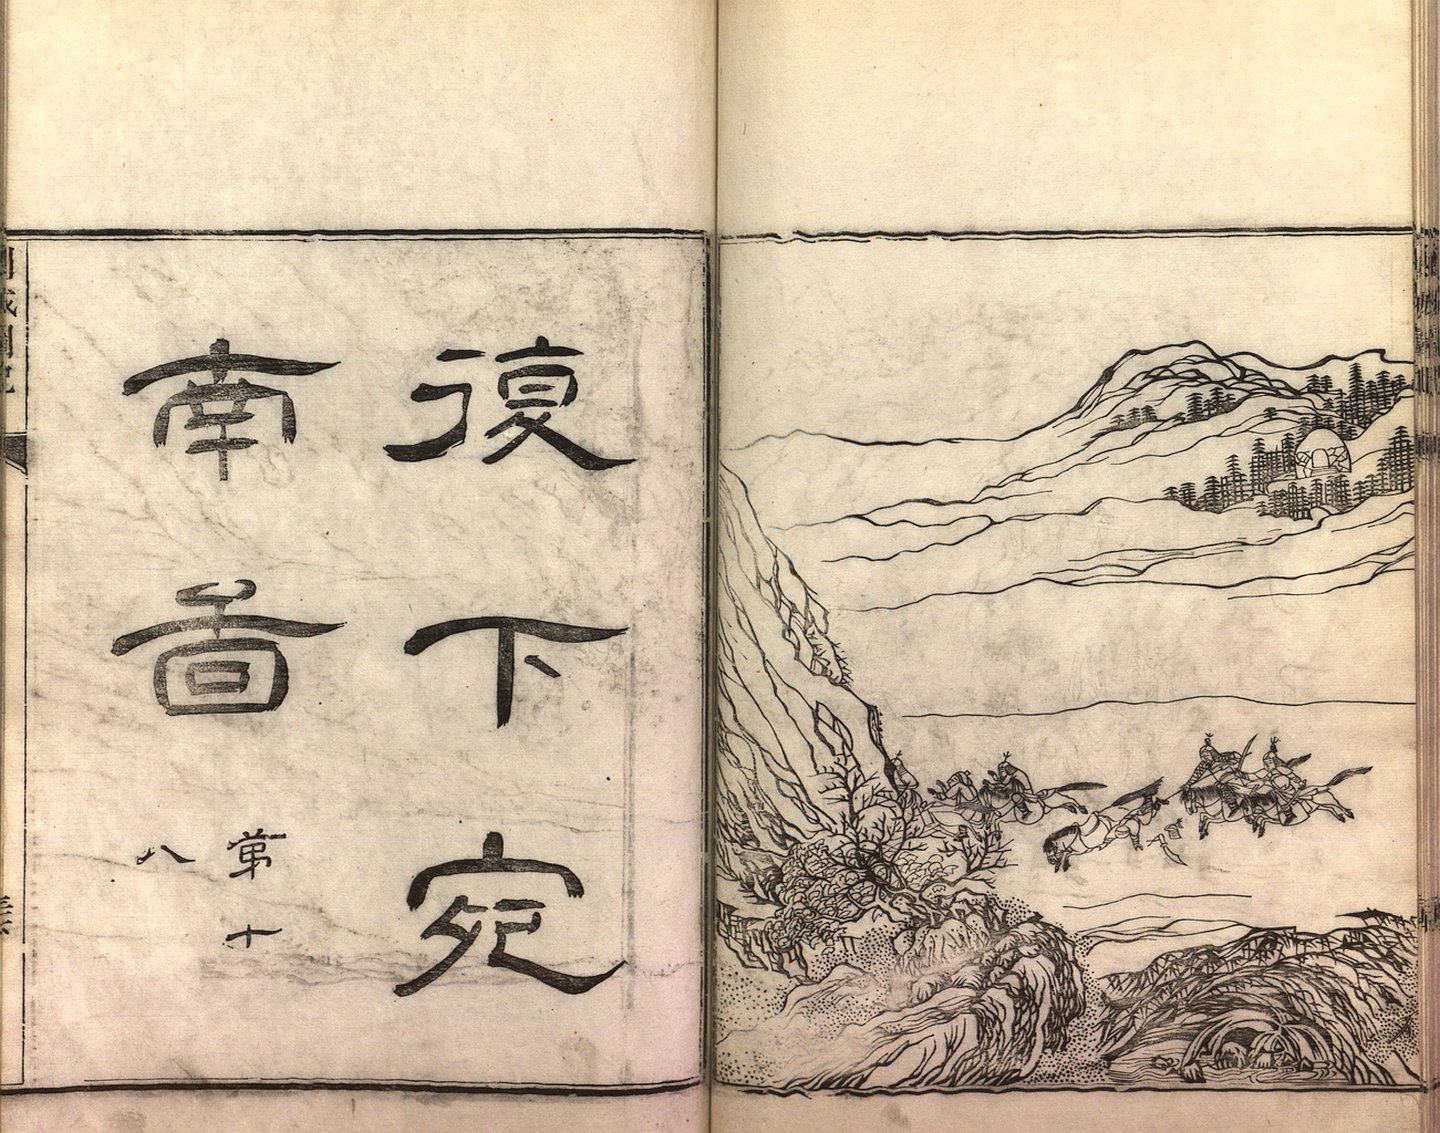 復下宛
南啚
第十
八